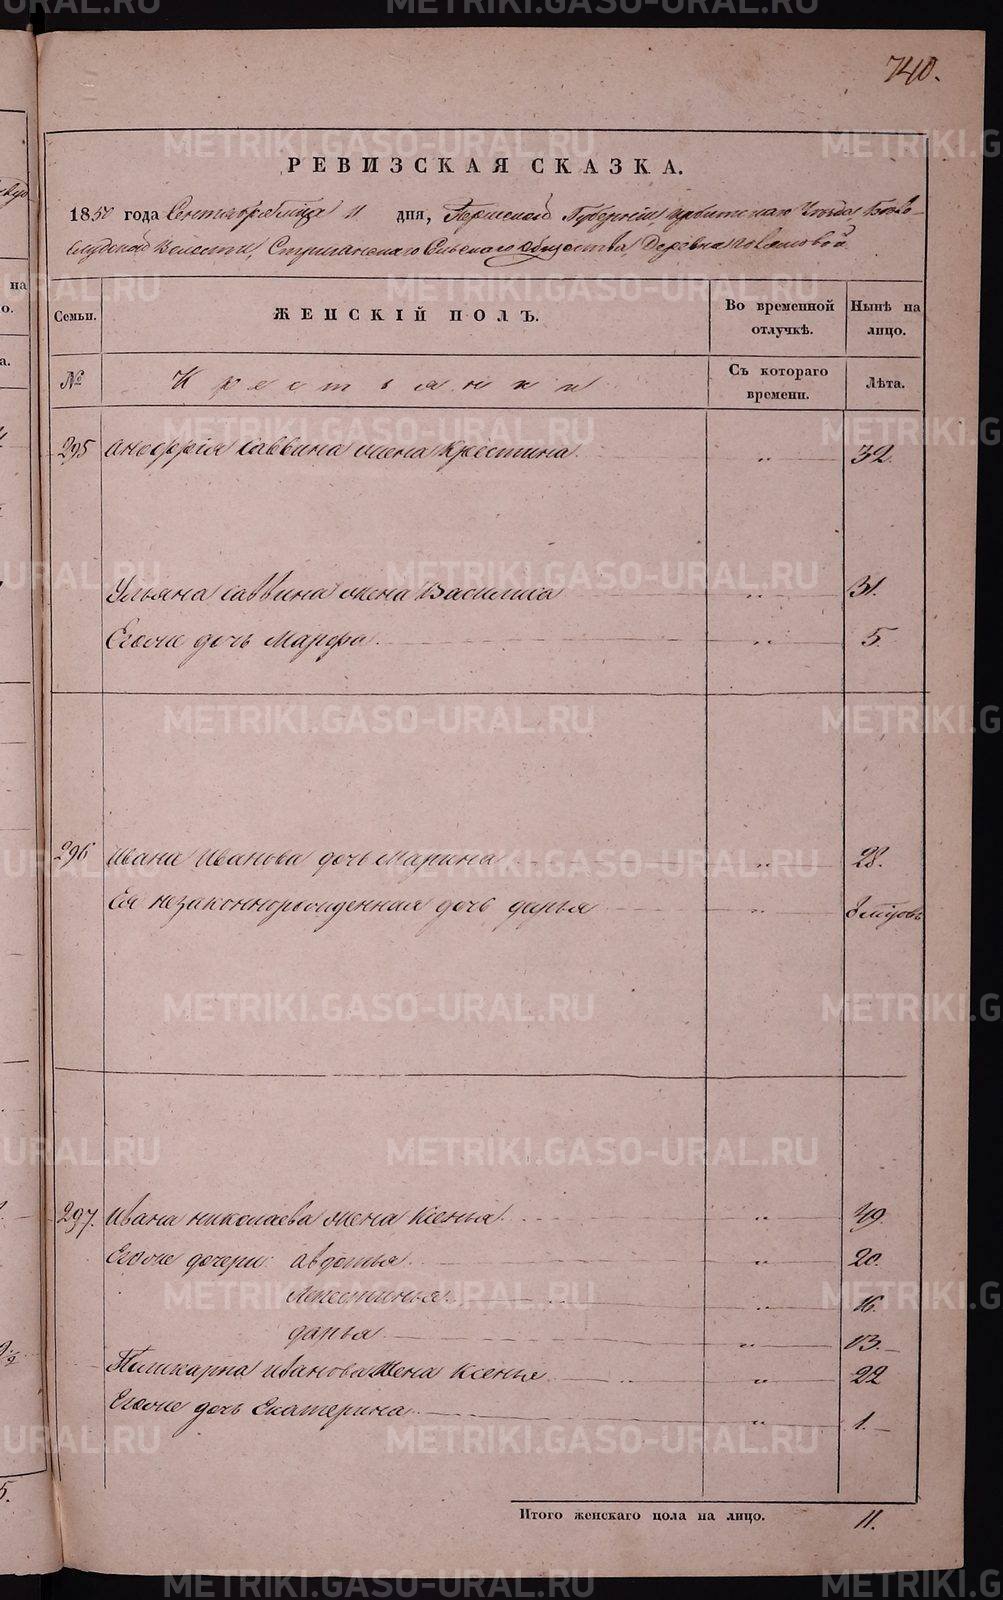 740.
РЕВИЗСКАЯ СКАЗКА.
1850 года Сентября мца 11 дня, Пермской Губернии Ирбитскаго Уезда, Бело-
слудской Волости, Стриганскаго Сельскаго общества, Деревни
Семьи.
ЖЕНСКІЙ ПОЛЪ.
Во временной отлучкѣ.
Нынѣ на лицо.
№
Крестьянки
Съ котораго времени.
Лѣта.
295 Анофрія Саввина жена Крестина „ 32.
Ульяна Саввина жена Василиса „ 31.
Егоже дочь Марфа. „ 5.
296 Ивана Иванова дочь Марина „ 28.
Ея незаконнорожденная дочь Дарья „ мцовъ
297. Ивана Николаева жена Ксенья. „ 49.
Егоже дочери: Авдотья. „ 20.
„ 16.
Дарья „ 13.
Иванова жена Ксенья „ 22
Егоже дочь Екатерина „ 1.
Итого женскаго пола на лицо. 11.
METRIKI.GASO-URAL.RU